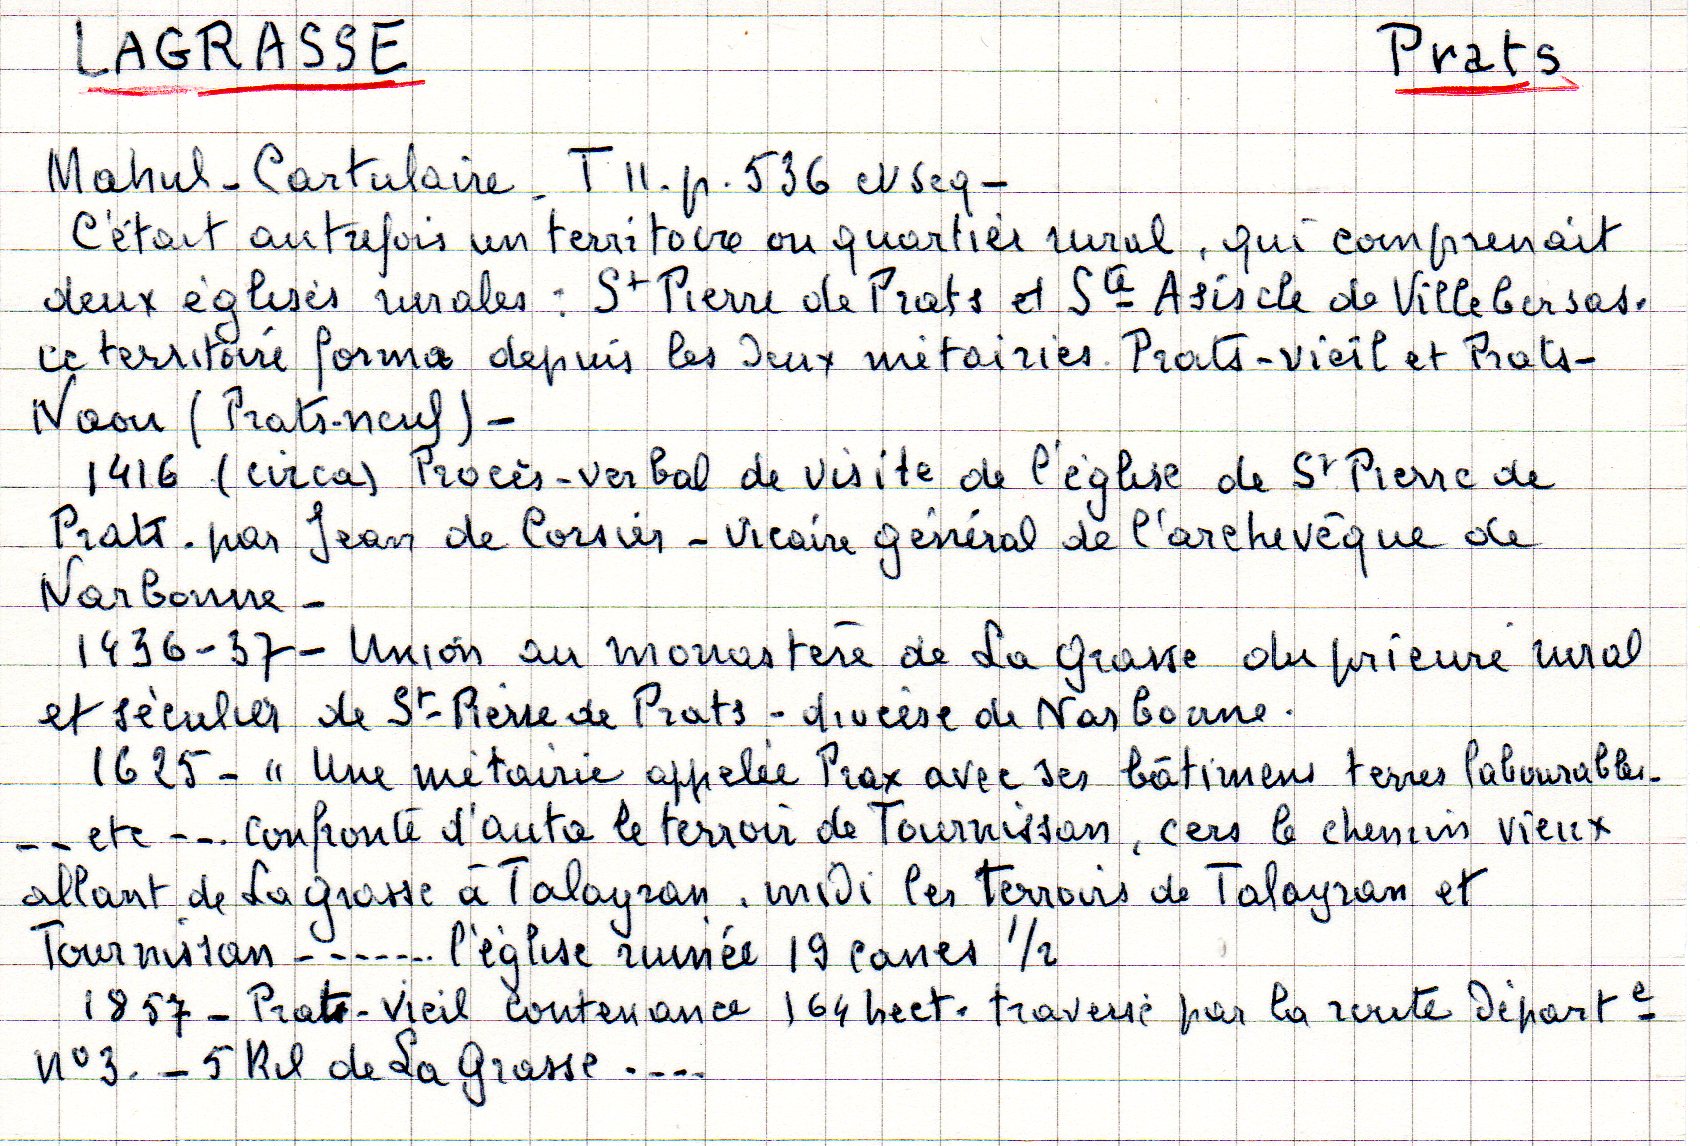 LAGRASSE Prats
Mahul - Cartulaire - T II. p. 536 et seq -
C'était autrefois un territoire ou quartier rural, qui comprenait
deux églises rurales : St Pierre de Prats et Ste Asiscle de Villebersas.
ce territoire forma depuis les deux métairies. Prats-vieil et Prats-
Naou (Prats-neuf) -
1416 (circa) Procès-verbal de visite de l'église de St Pierre de
Prats. par Jean de Corsier - vicaire général de l'archevêque de
Narbonne -
1436-37 - Union au monastère de La Grasse du prieuré rural
et séculier de St-Pierre de Prats - diocèse de Narbonne.
1625 - " Une métairie appelée Prax avec ses bâtimens terres labourables -
-- etc --. confronte d'auta le terroir de Tournissan, cers le chemin vieux
allant de La Grasse à Talayran, midi les terroirs de Talayran et
Tournissan ------- l'église ruinée 19 canes 1/2
1857 - Prats-vieil contenance 164 hect. traversé par la route départe
n° 3. - 5 Kil de La Grasse ----